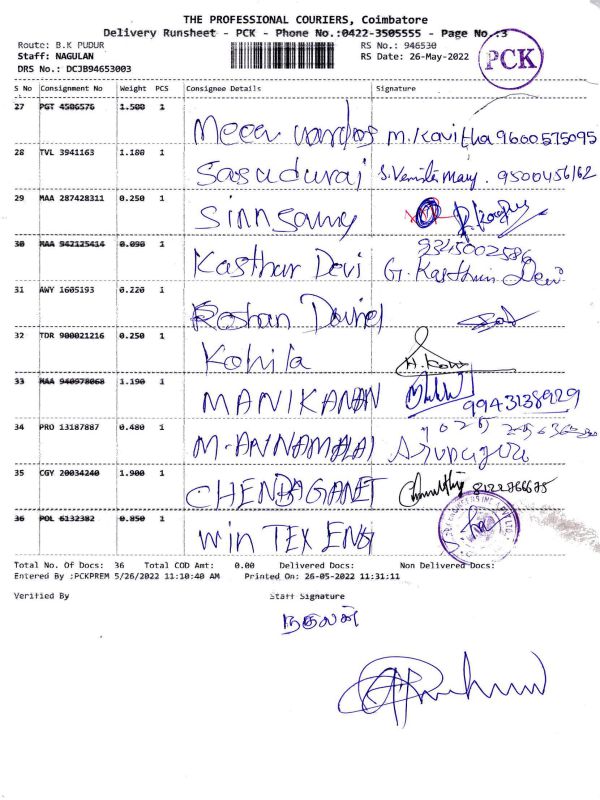 THE PROFESSIONAL COURIERS, Coimbatore
Delivery Runsheet - PCK - Phone No.:0422-3505555 - Page No.:3
Route: B.K PUDUR RS No.: 946530
Staff: NAGULAN RS Date: 26-May-2022
DRS No.: DCJB94653003
PCK
S No Consignment No Weight PCS Consignee Details Signature
27 PGT 4506576 1.500 1 Meea M. Kavitha 9600575095
28 TVL 3941163 1.180 1 Sasadurai 9500456162
29 MAA 287428311 0.250 1 Sinnsamy
30 MAA 942125414 0.090 1 Kasthur Devi 9345002586 G. Kasthuri Devi
31 AWY 1605193 0.220 1 Roshan Daniel
32 TDR 900021216 0.250 1 Kohila
33 MAA 940978068 1.190 1 MANIKANAN 9943138929
34 PRO 13187887 0.480 1 M-ANNAMALAI
35 CGY 20034240 1.900 1 8122866675
36 POL 6132382 0.850 1 WIN TEX ENG
Total No. Of Docs: 36 Total COD Amt: 0.00 Delivered Docs: Non Delivered Docs:
Entered By :PCKPREM 5/26/2022 11:10:40 AM Printed On: 26-05-2022 11:31:11
Verified By Staff Signature
நகுலன்